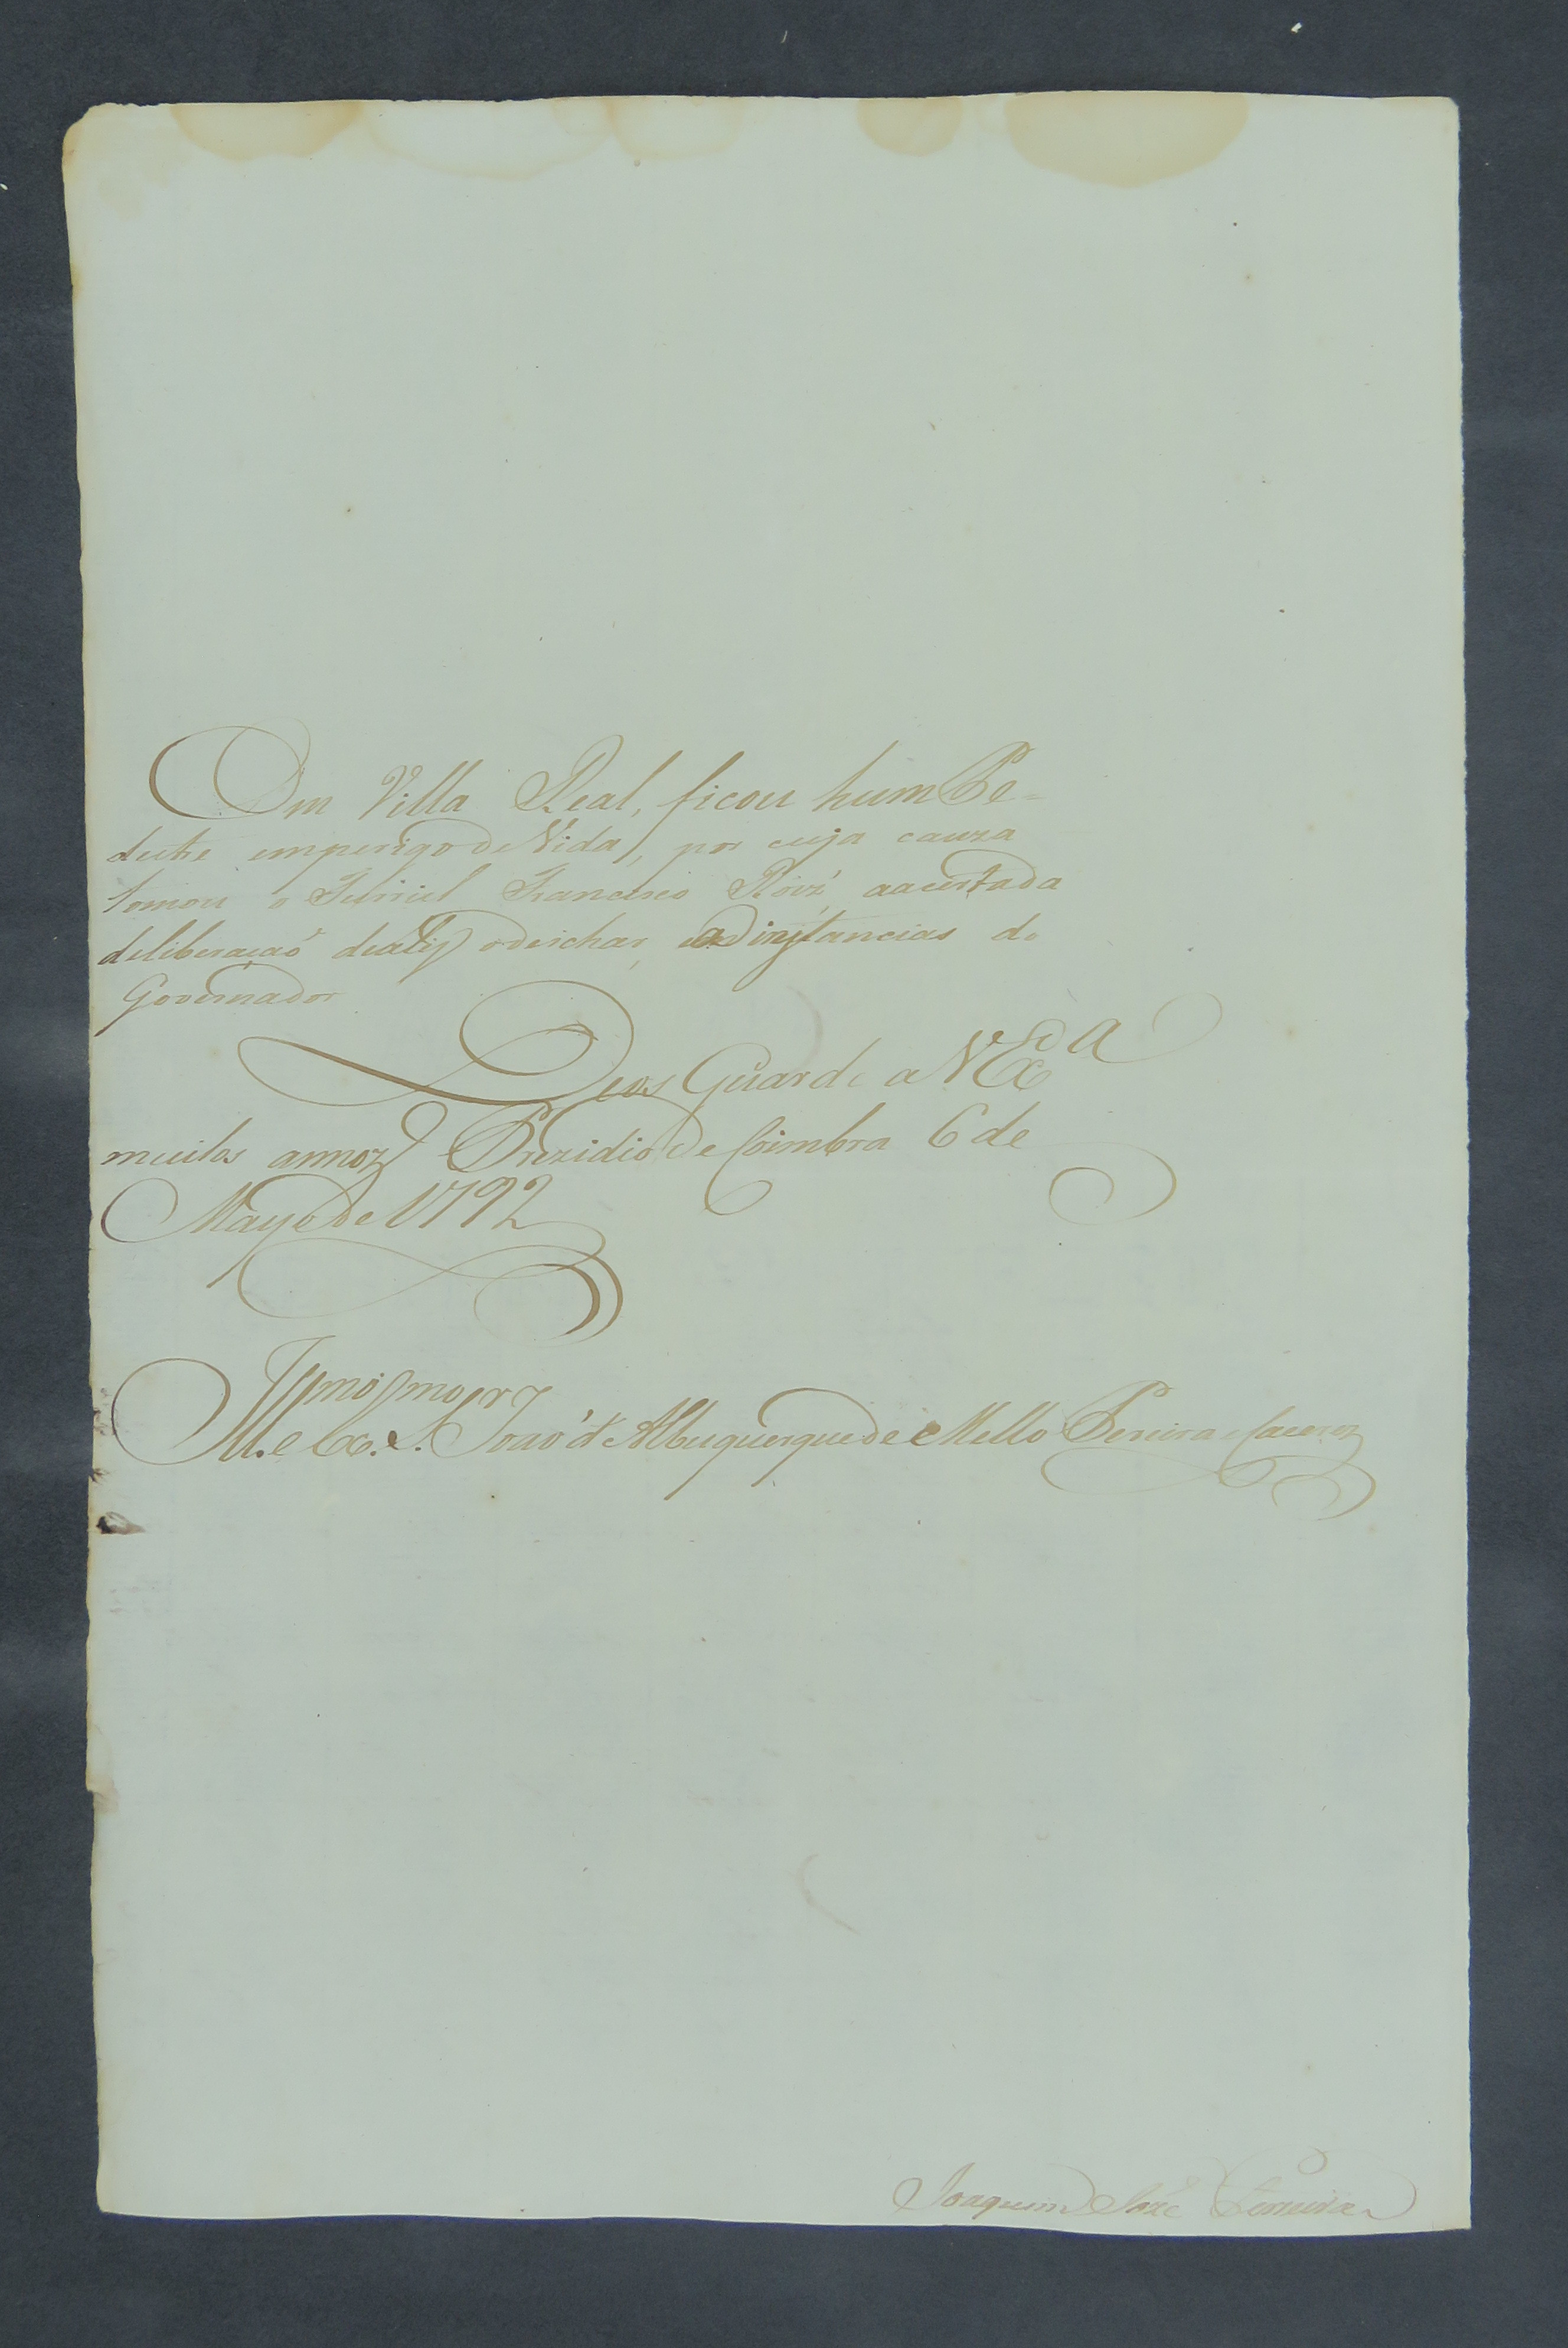 Em Villa Real, ficou hum Pe-
destre emperigo de Vida, por cuja cauza
tomou o Furriel Francisco Roiz' aacertada
deliberaçaõ deali o deichar, a instancias do
Governador
Deos Guarde a V Exª
muitos annoz Prezidio de Coimbra 6 de
Mayo de 1792
Illmo e Exmo Sr Joaõ d' Albuquerque de Mello Pereira e Caceres
Joaquim José Ferreira